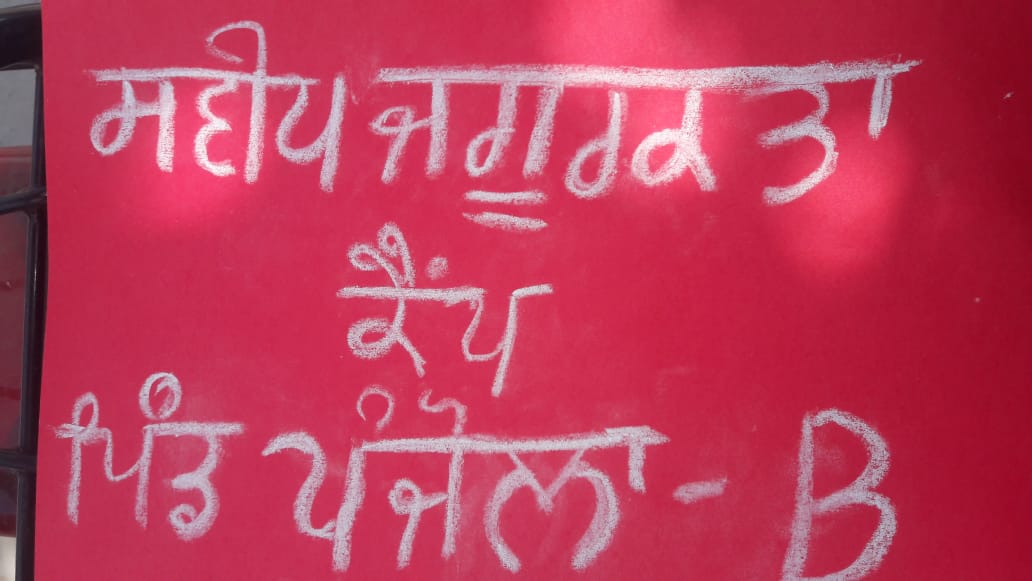 ਸਵੀਪ ਜਗੂਰਕਤਾ
ਕੈਂਪ
ਪਿੰਡ ਪੰਜੋਲਾ - B